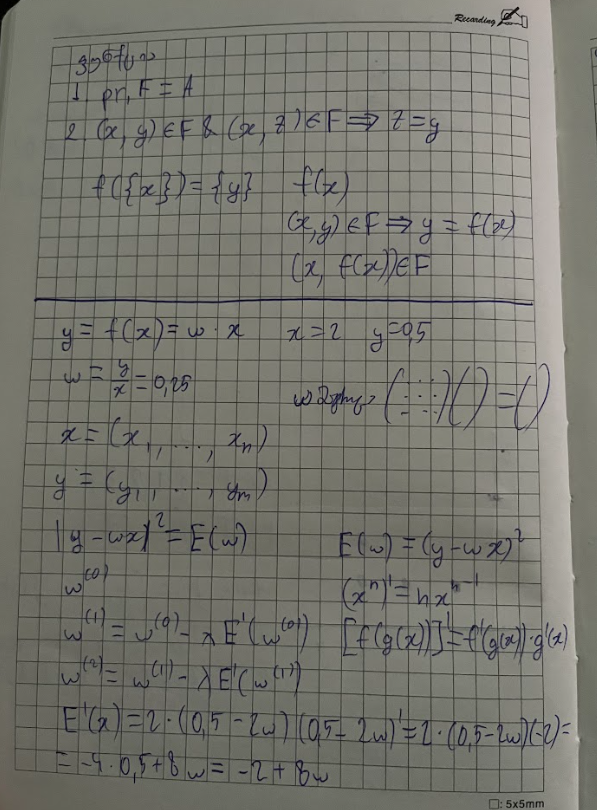 Recording
1. pr₁F = A
2. (x, y) ∈ F & (x, z) ∈ F ⟹ z = y
f({x}) = {y} f(x)
(x, y) ∈ F ⟹ y = f(x)
(x, f(x)) ∈ F
y = f(x) = w · x x = 2 y = 0,5
w = y/x = 0,25
w ( ) ( ) = ( )
x = (x₁, ..., xₙ)
y = (y₁, ..., yₘ)
|y - wx|² = E(w) E(w) = (y - wx)²
w⁽⁰⁾ (xⁿ)' = nxⁿ⁻¹
w⁽¹⁾ = w⁽⁰⁾ - λE'(w⁽⁰⁾) [f(g(x))]' = f'(g(x)) · g'(x)
w⁽²⁾ = w⁽¹⁾ - λE'(w⁽¹⁾)
E'(x) = 2 · (0,5 - 2w) (0,5 - 2w)' = 2 · (0,5 - 2w)(-2) =
= -4 · 0,5 + 8w = -2 + 8w
□: 5x5mm